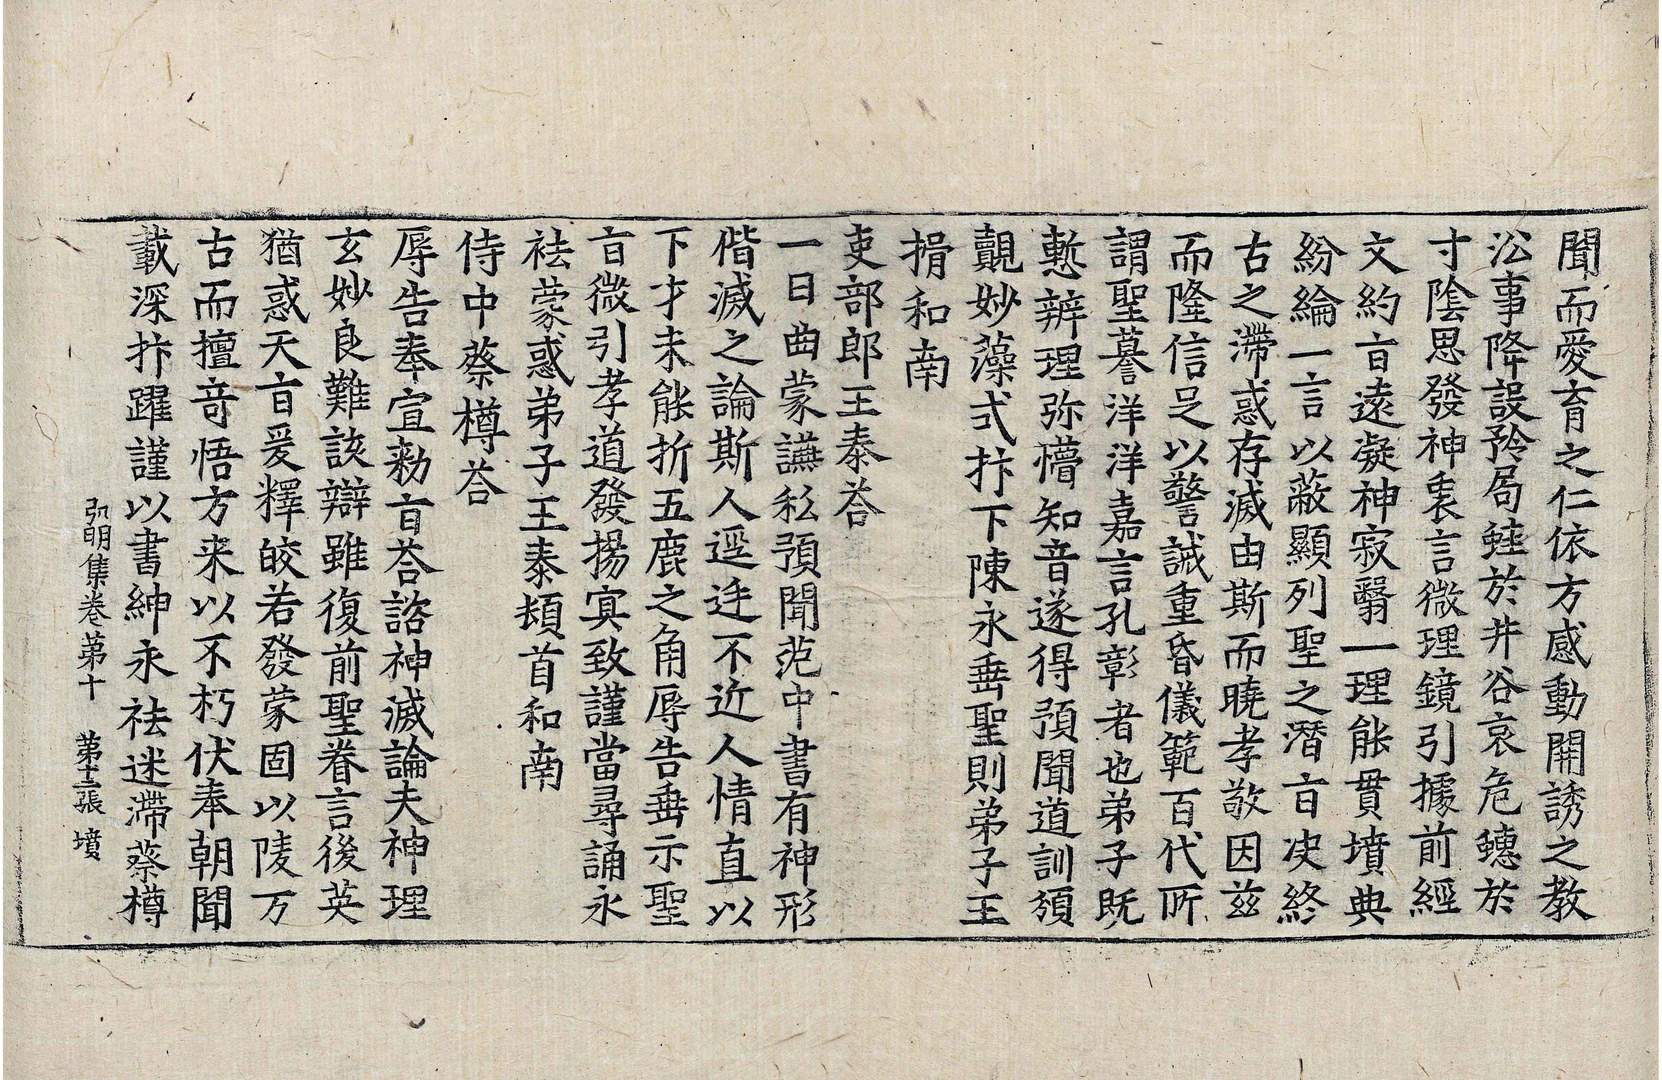 聞而愛育之仁依方感動開誘之教
沿事降設矜局蛙於井谷哀危䗥於
寸陰思發神衷言微理鏡引據前經
文約旨遠凝神寂翳一理能貫墳典
紛綸一言以蔽顯列聖之潛旨決終
古之滯惑存滅由斯而曉孝敬因茲
而隆信足以警誡重昏儀範百代所
謂聖謩洋洋嘉言孔彰者也弟子既
慙辨理弥懵知音遂得預聞道訓頒
覿妙藻式抃下陳永垂聖則弟子王
揖和南
吏部郎王泰荅
一日曲蒙讌私預聞范中書有神形
偕滅之論斯人逕迋不近人情直以
下才未能折五鹿之角辱告垂示聖
旨微引孝道發揚冥致謹當尋誦永
袪蒙惑弟子王泰頓首和南
侍中蔡樽荅
辱告奉宣勑旨荅諮神滅論夫神理
玄妙良難該辯雖復前聖眷言後英
猶惑天旨爰釋皎若發蒙固以陵万
古而擅竒悟方来以不朽伏奉朝聞
載深抃躍謹以書紳永袪迷滯蔡樽
弘明集卷第十 第十二張 墳